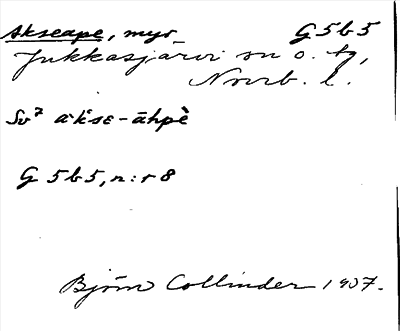 Akseape, myr G5b5
Jukkasjärvi sn o. tg,
Norrb. l.
Sv⁷ akse-āhpè
G 5b5, n:r 8
Björn Collinder 1907.